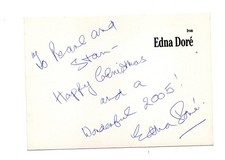 from
Edna Doré
To Pearl and
Stan -
Happy Christmas
and a
Wonderful 2005!
Edna Doré.